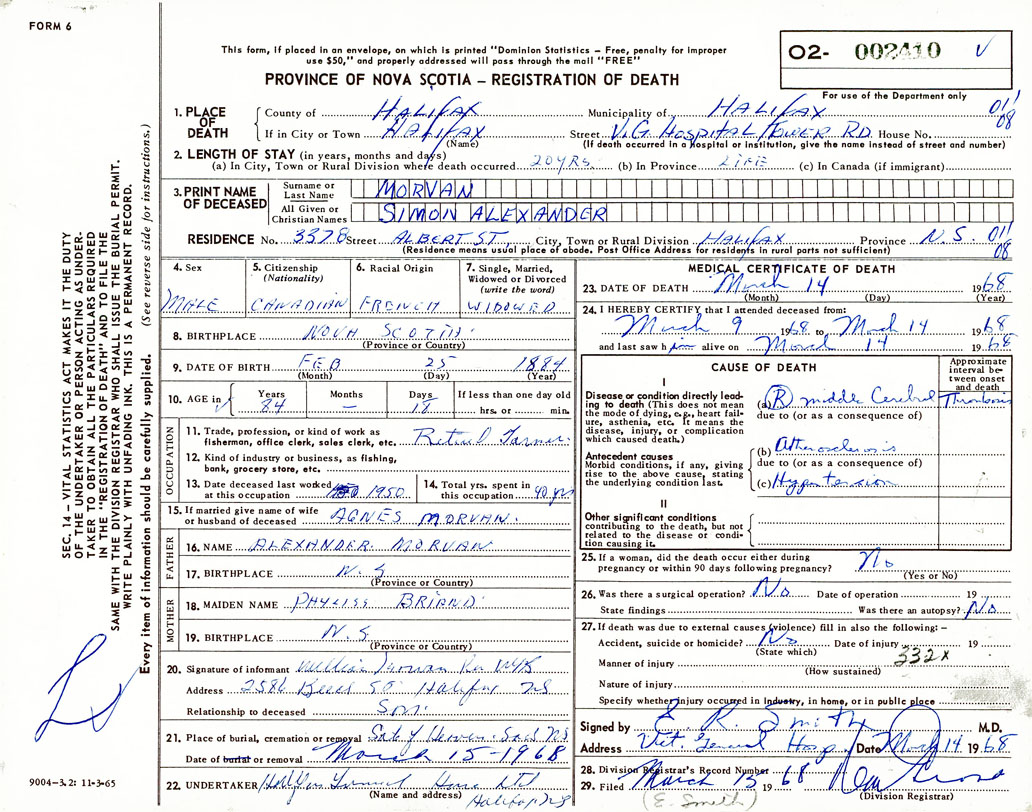 FORM 6
This form, if placed in an envelope, on which is printed "Dominion Statistics – Free, penalty for improper
use $50," and properly addressed will pass through the mail "FREE"
PROVINCE OF NOVA SCOTIA – REGISTRATION OF DEATH
O2- 002410 √
For use of the Department only
1. PLACE OF DEATH County of HALIFAX Municipality of HALIFAX 01'
If in City or Town HALIFAX Street V.G. HOSPITAL TOWER RD. House No. 08
(Name) (If death occurred in a hospital or institution, give the name instead of street and number)
2. LENGTH OF STAY (in years, months and days)
(a) In City, Town or Rural Division where death occurred 20 YRS. (b) In Province LIFE (c) In Canada (if immigrant)
3. PRINT NAME OF DECEASED Surname or Last Name MORVAN
All Given or Christian Names SIMON ALEXANDER
RESIDENCE No. 3378 Street ALBERT ST. City, Town or Rural Division HALIFAX Province N.S. 01'
(Residence means usual place of abode. Post Office Address for residents in rural parts not sufficient) 08
4. Sex MALE
5. Citizenship (Nationality) CANADIAN
6. Racial Origin FRENCH
7. Single, Married, Widowed or Divorced (write the word) WIDOWED
8. BIRTHPLACE NOVA SCOTIA
(Province or Country)
9. DATE OF BIRTH FEB 25 1884
(Month) (Day) (Year)
10. AGE in Years 84 Months – Days 18 If less than one day old hrs. or min.
OCCUPATION
11. Trade, profession, or kind of work as
fisherman, office clerk, sales clerk, etc. Retired Farmer.
12. Kind of industry or business, as fishing,
bank, grocery store, etc.
13. Date deceased last worked
at this occupation 1950
14. Total yrs. spent in
this occupation 40 yrs
15. If married give name of wife
or husband of deceased AGNES MORVAN.
FATHER
16. NAME ALEXANDER MORVAN
17. BIRTHPLACE N.S
(Province or Country)
MOTHER
18. MAIDEN NAME PHYLISS BRIAND
19. BIRTHPLACE N.S
(Province or Country)
20. Signature of informant William Morvan
Address 2586 St Halifax NS
Relationship to deceased Son.
21. Place of burial, cremation or removal
Date of burial or removal March 15-1968
22. UNDERTAKER Halifax Funeral Home Ltd
(Name and address) Halifax NS
MEDICAL CERTIFICATE OF DEATH
23. DATE OF DEATH March 14 1968
(Month) (Day) (Year)
24. I HEREBY CERTIFY that I attended deceased from:
March 9 1968 to March 14 1968
and last saw him alive on March 14 1968
CAUSE OF DEATH
Approximate interval between onset and death
I
Disease or condition directly leading to death (This does not mean the mode of dying, e.g., heart failure, asthenia, etc. It means the disease, injury, or complication which caused death.)
(a) (R) middle Cerebral Thrombosis
due to (or as a consequence of)
Antecedent causes
Morbid conditions, if any, giving rise to the above cause, stating the underlying condition last.
(b) Atherosclerosis
due to (or as a consequence of)
(c) Hypertension
II
Other significant conditions
contributing to the death, but not
related to the disease or condition causing it.
25. If a woman, did the death occur either during
pregnancy or within 90 days following pregnancy? No
(Yes or No)
26. Was there a surgical operation? No Date of operation 19
State findings Was there an autopsy? No
27. If death was due to external causes (violence) fill in also the following: –
Accident, suicide or homicide? No Date of injury 19
(State which) 332X
Manner of injury
(How sustained)
Nature of injury
Specify whether injury occurred in industry, in home, or in public place
Signed by E. R. Smith M.D.
Address Vict. General Hosp. Date March 14 1968
28. Division Registrar's Record Number
29. Filed March 15 1968
(E. Smith) (Division Registrar)
SEC. 14 – VITAL STATISTICS ACT MAKES IT THE DUTY
OF THE UNDERTAKER OR PERSON ACTING AS UNDER-
TAKER TO OBTAIN ALL THE PARTICULARS REQUIRED
IN THE "REGISTRATION OF DEATH" AND TO FILE THE
SAME WITH THE DIVISION REGISTRAR WHO SHALL ISSUE THE BURIAL PERMIT.
WRITE PLAINLY WITH UNFADING INK. THIS IS A PERMANENT RECORD.
Every item of information should be carefully supplied. (See reverse side for instructions.)
9004-3.2: 11-3-65